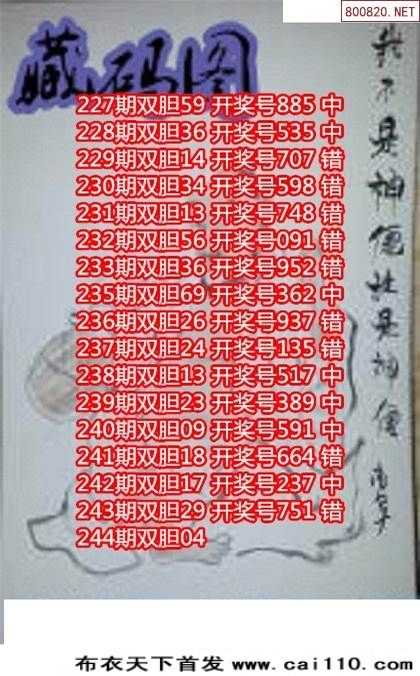 800820.NET
藏码图
我不是神但就是神僧
227期双胆59 开奖号885 中
228期双胆36 开奖号535 中
229期双胆14 开奖号707 错
230期双胆34 开奖号598 错
231期双胆13 开奖号748 错
232期双胆56 开奖号091 错
233期双胆36 开奖号952 错
235期双胆69 开奖号362 中
236期双胆26 开奖号937 错
237期双胆24 开奖号135 错
238期双胆13 开奖号517 中
239期双胆23 开奖号389 中
240期双胆09 开奖号591 中
241期双胆18 开奖号664 错
242期双胆17 开奖号237 中
243期双胆29 开奖号751 错
244期双胆04
布衣天下首发 www.cai110.com